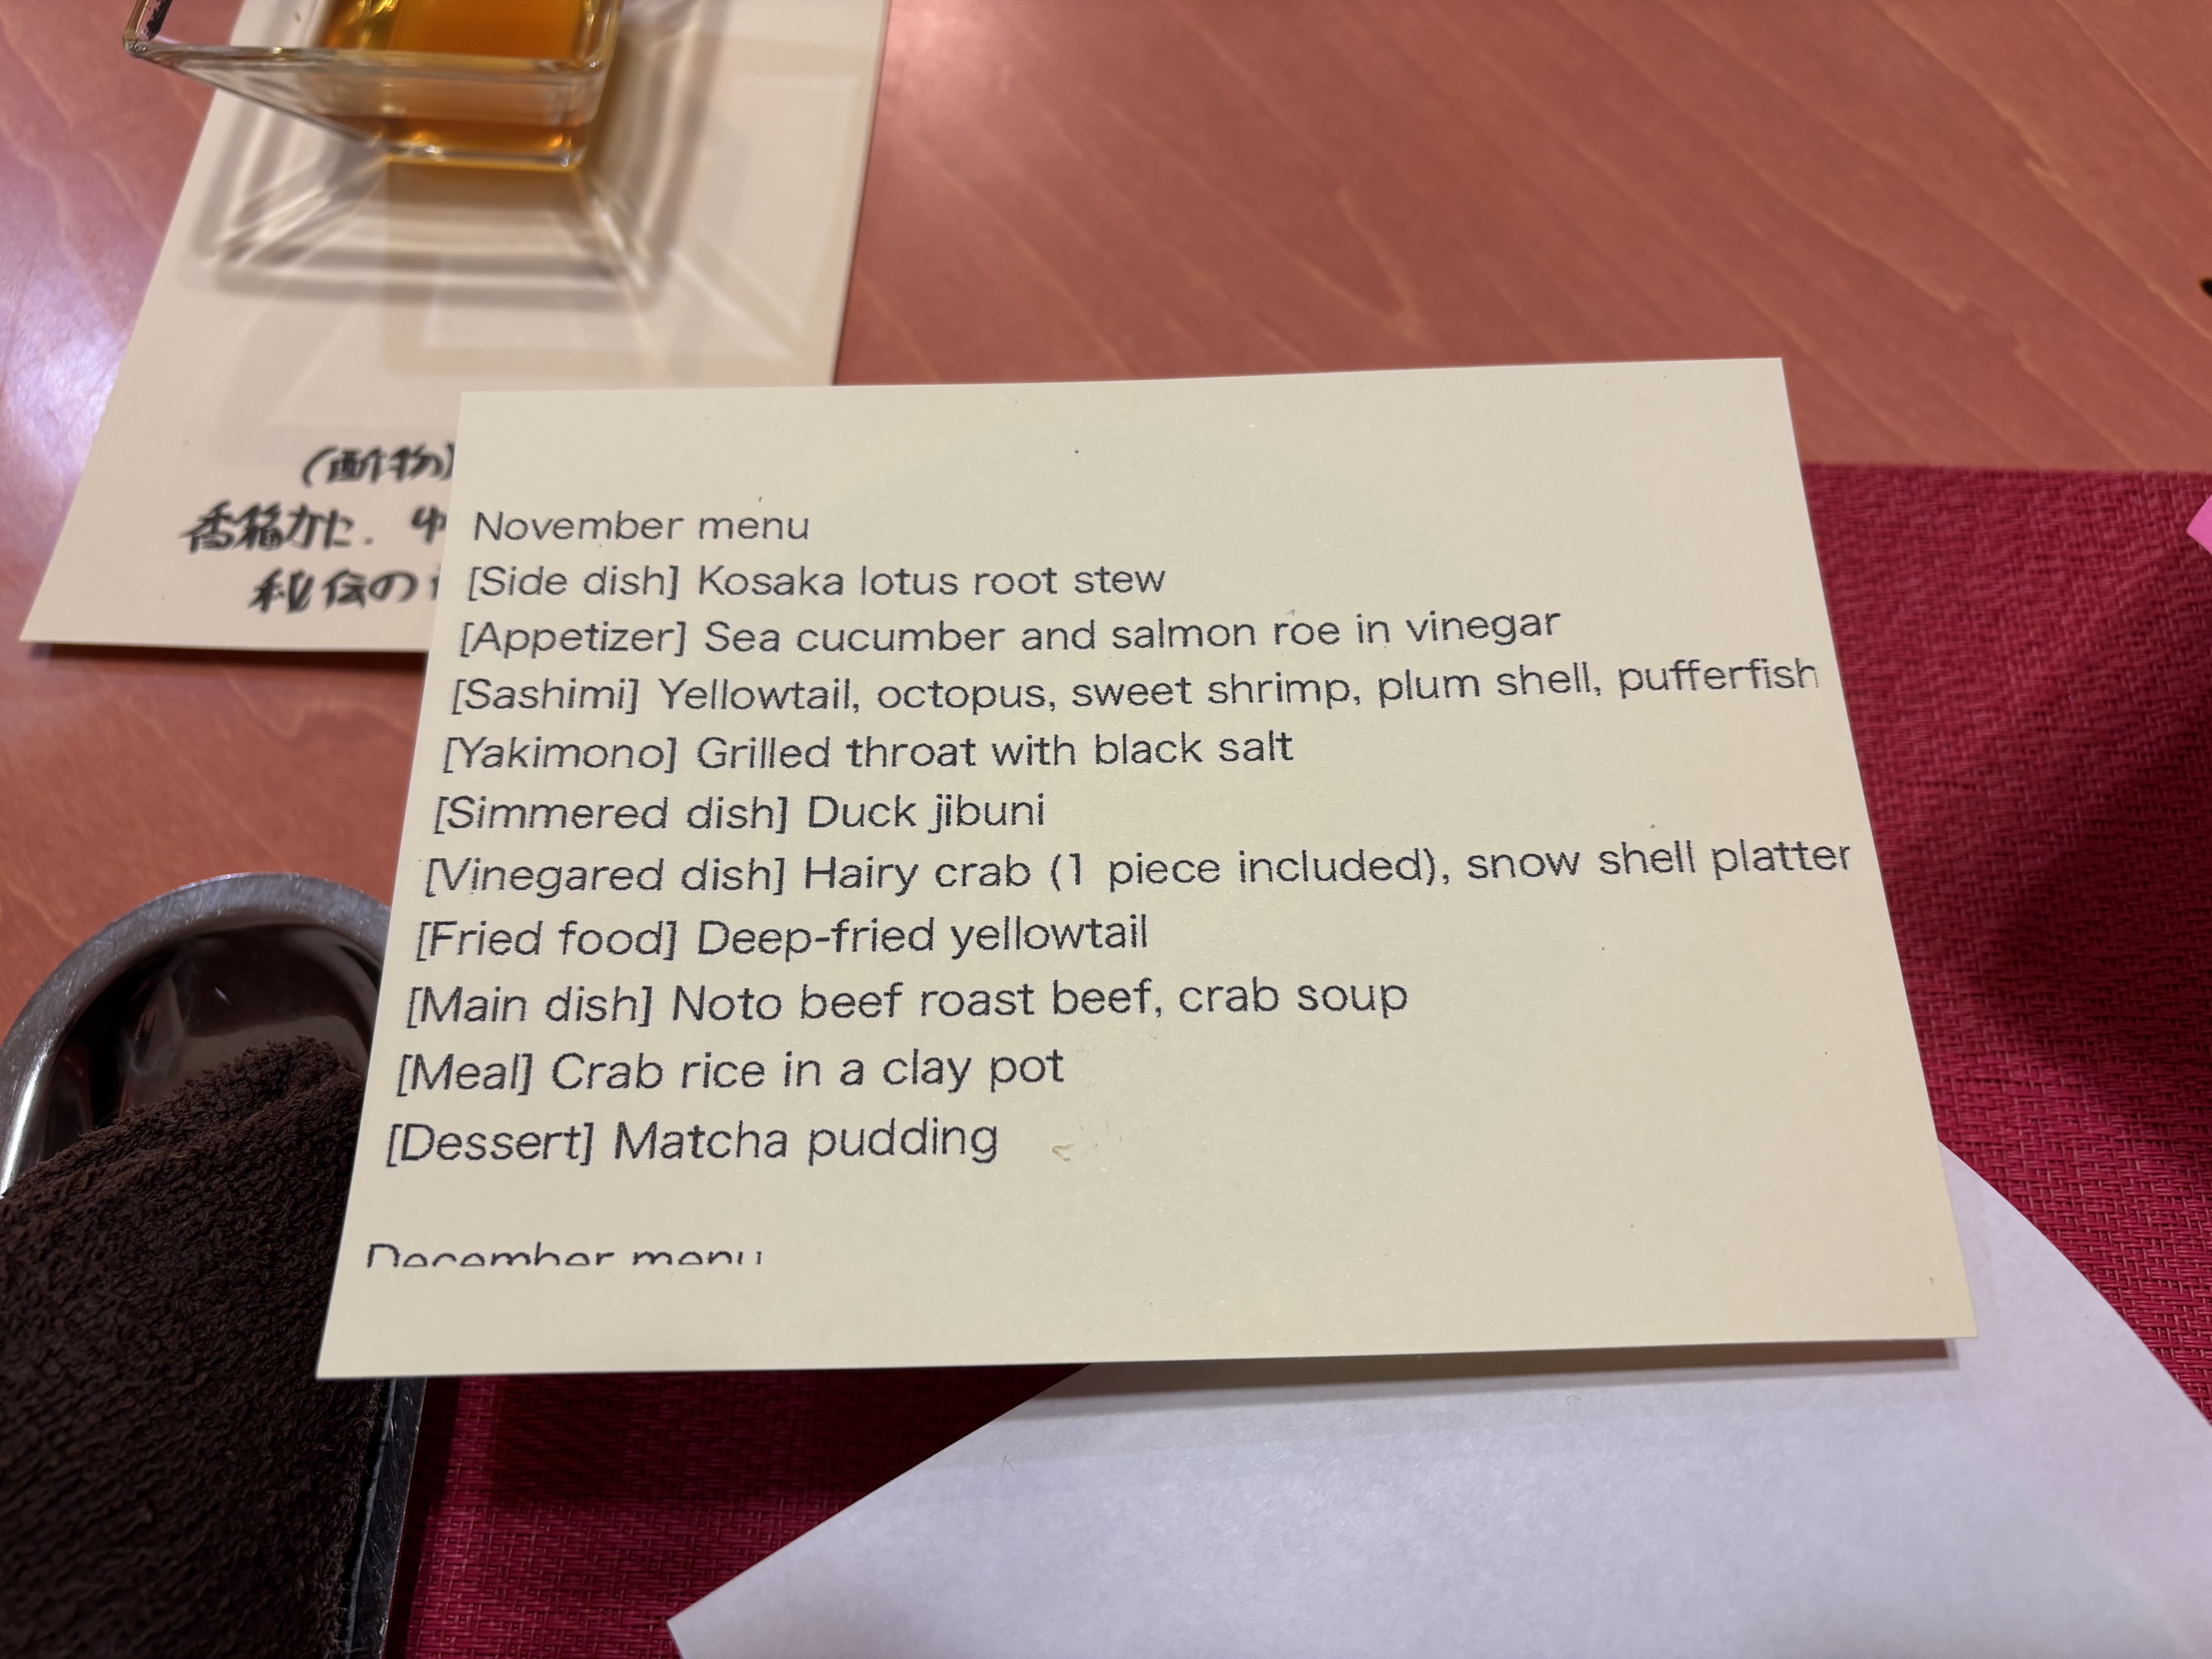 (酢物)
香箱かに.
秘伝の
November menu
[Side dish] Kosaka lotus root stew
[Appetizer] Sea cucumber and salmon roe in vinegar
[Sashimi] Yellowtail, octopus, sweet shrimp, plum shell, pufferfish
[Yakimono] Grilled throat with black salt
[Simmered dish] Duck jibuni
[Vinegared dish] Hairy crab (1 piece included), snow shell platter
[Fried food] Deep-fried yellowtail
[Main dish] Noto beef roast beef, crab soup
[Meal] Crab rice in a clay pot
[Dessert] Matcha pudding
December menu